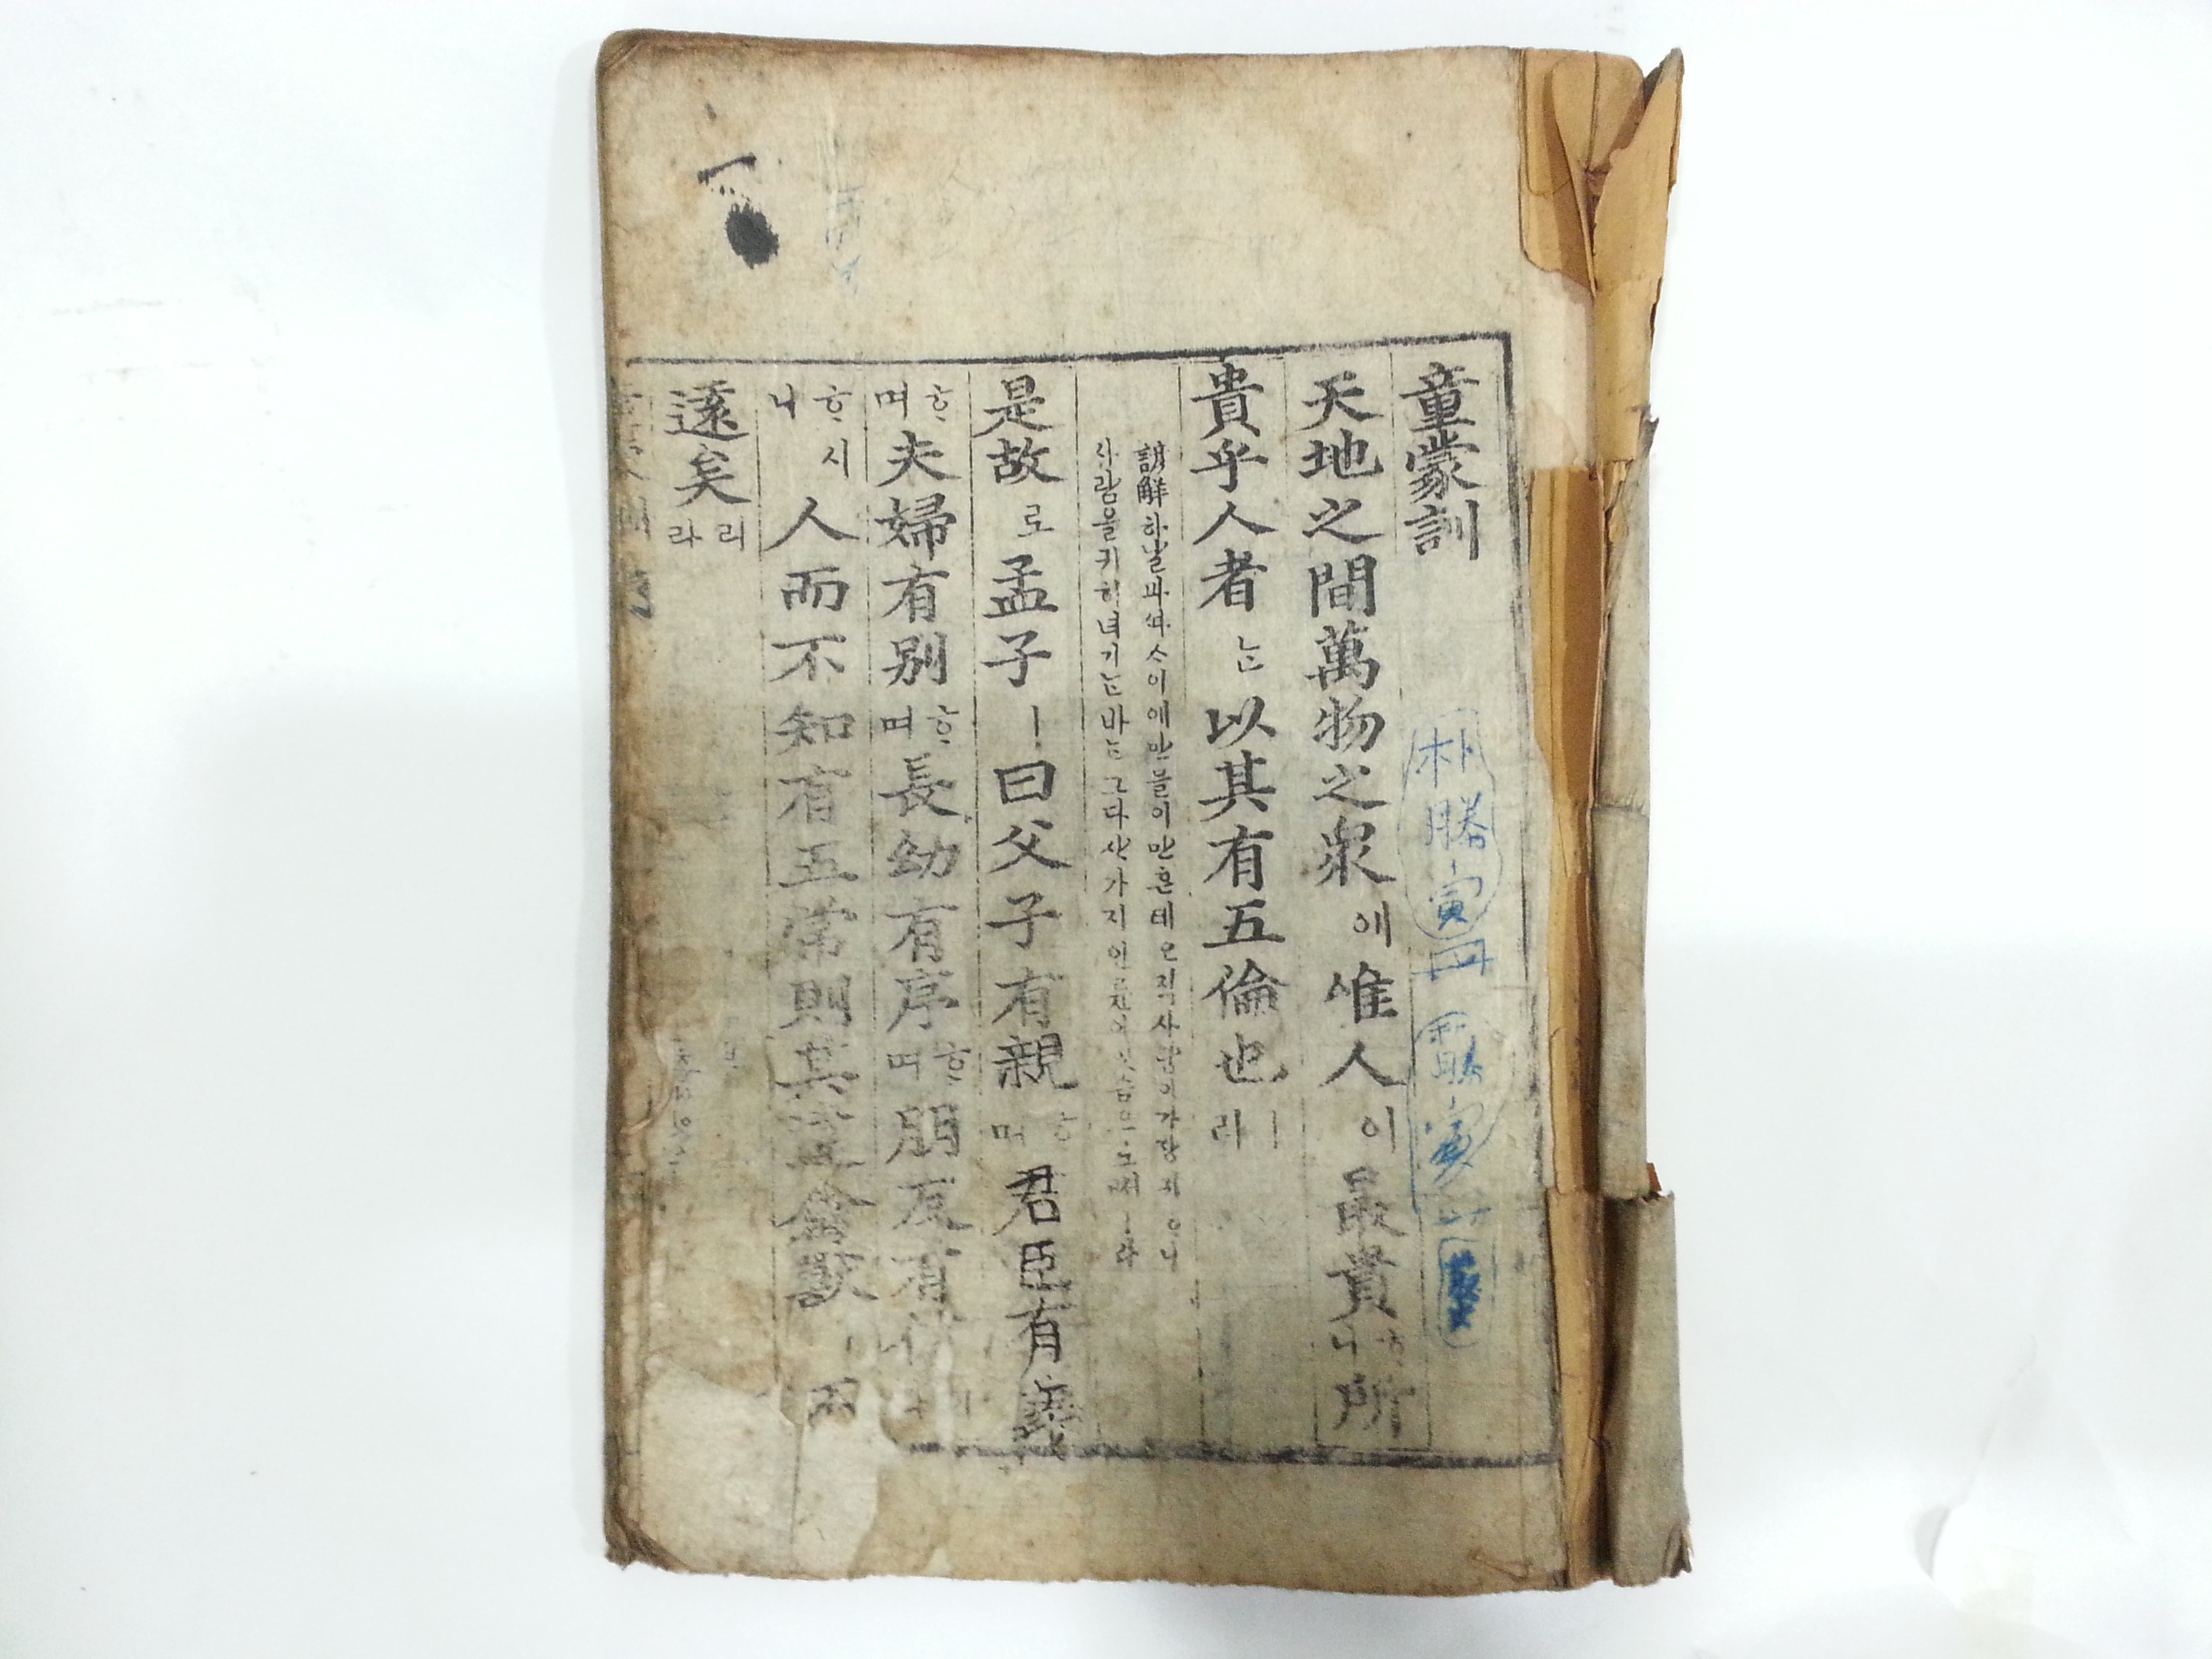 童蒙訓
天地之間萬物之衆에惟人이最貴ᄒᆞ니所
貴乎人者ᄂᆞᆫ以其有五倫也ㅣ라
諺解하날과ᄯᅡᄉᆞ이에만물이만흔테오직사람이가장귀ᄒᆞ니
사람을귀히녀기ᄂᆞᆫ바ᄂᆞᆫ그다삿가지인륜이
是故로孟子ㅣ曰父子有親ᄒᆞ며君臣有義
ᄒᆞ며夫婦有別ᄒᆞ며長幼有序ᄒᆞ며朋友有信
ᄒᆞ시니人而不知有五常則其違禽獸ㅣ不
遠矣리라
朴勝寅冊